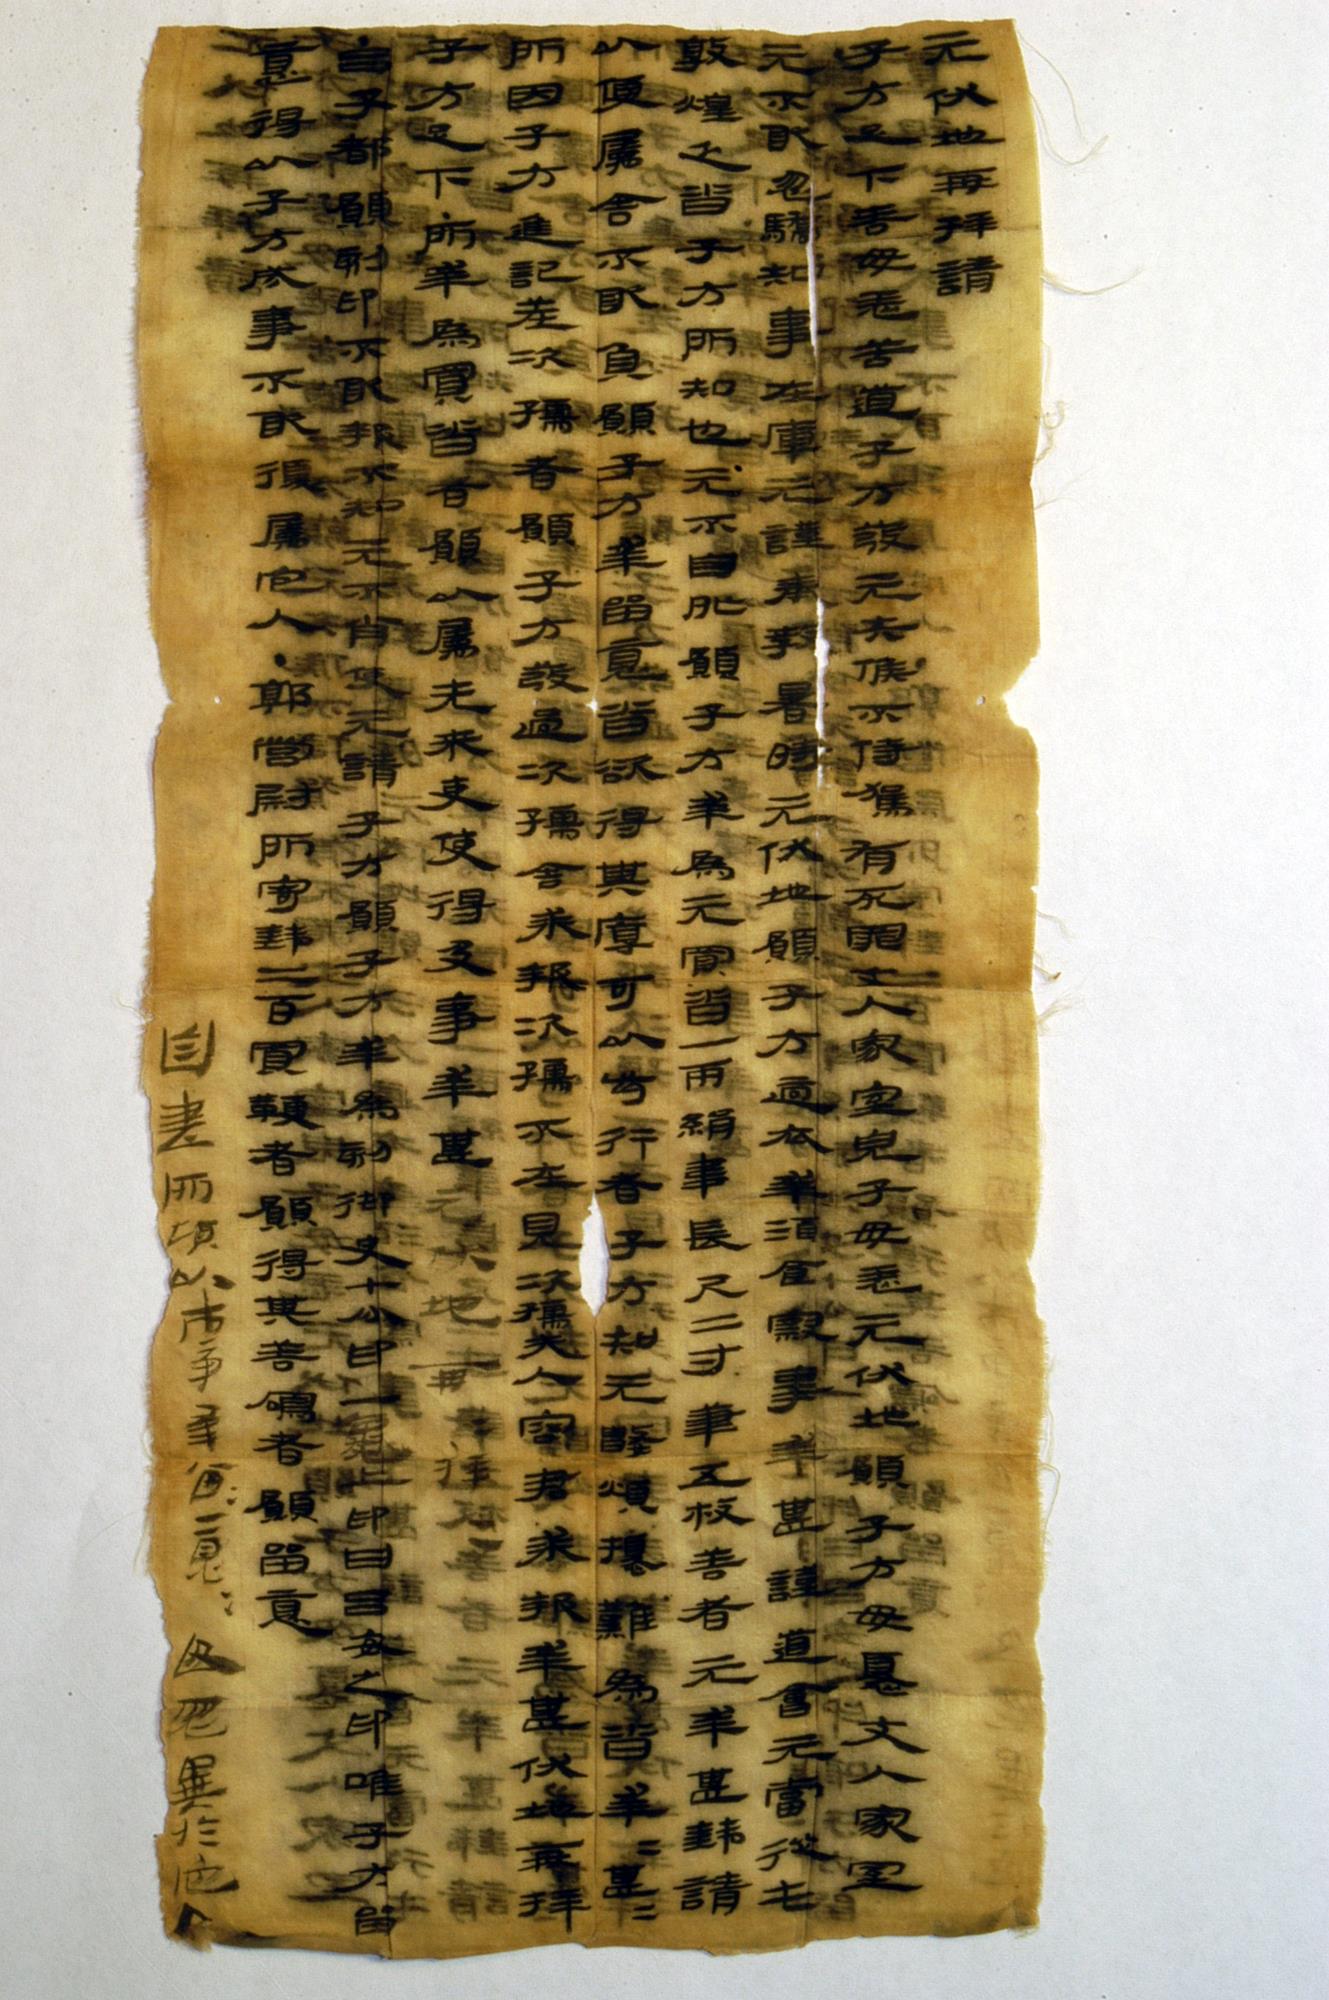 元伏地再拜請
子方足下善毋恙苦道子方發元失候不侍駕有死罪丈人家室兒子毋恙元伏地願子方毋憂丈人家室
元不敢忽驕知事在庫元謹奉教暑時元伏地願子方適衣幸酒食察事幸甚謹道會元當從屯
敦煌乏沓子方所知也元不自外願子方幸為元買沓一兩絹韋長尺二寸筆五枚善者元幸甚錢請
以便屬舍不敢負願子方幸留意沓欲得其厚可以步行者子方知元數煩擾難為沓幸〻甚〻
所因子方進記差次孺者願子方發過次孺舍求報次孺不在見次孺夫人容君求報幸甚伏地再拜
子方足下所幸為買沓者願以屬先來吏使得及事幸甚元伏地再拜再拜
呂子都願刻印不敢報不知元不肖使元請子方願子方幸為刻御史七分印一龜上印曰呂安之印唯子方留
意得以子方成事不敢復屬它人·郭營尉所寄錢二百買鞭者願得其善鳴者願留意
自書所願以市事幸留〻意〻毋忽異於它人